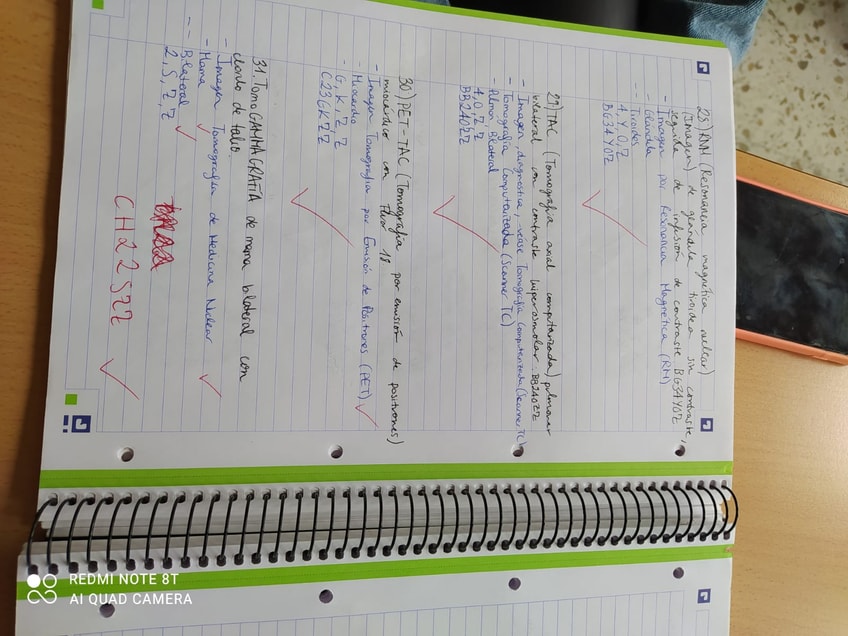 28) RNM (Resonancia magnética nuclear)
(Imagen) de glandula tiroidea sin contraste,
seguida de infusion de contraste BG34Y0Z
- Imagen por Resonancia Magnética (RM)
- Glandula
- Tiroides
- 4, Y, 0, Z
BG34Y0Z
29) TAC (Tomografia axial computarizada) pulmonar
bilateral con contraste hiperosmolar. BB240ZZ
- Imagen, diagnostica, vease Tomografia Computerizada (Scanner TC)
- Tomografia Computerizada (Scanner TC)
- Pulmon Bilateral
- 4, 0, Z, Z
BB240ZZ
30) PET-TAC (Tomografia por emisión de positrones)
miocárdico con Fluor 18
- Imagen Tomografia por Emisión de Positrones (PET)
- Miocardio
- G, K, Z, Z
C23GKZZ
31. TomoGAMMAGRAFIA de mama bilateral con
cloruro de talio.
- Imagen Tomografia de Medicina Nuclear
- Mama
- Bilateral
- 2, S, Z, Z
CH22SZZ
REDMI NOTE 8T
AI QUAD CAMERA